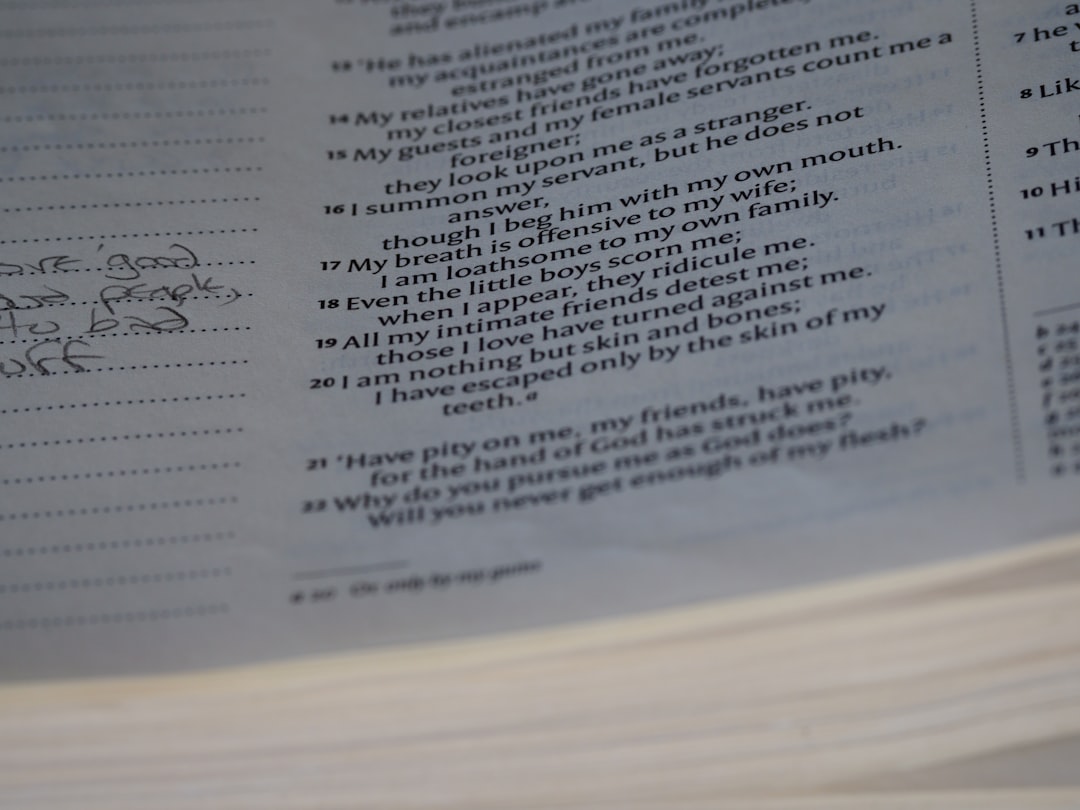 good
people,
to bad
and encamp
13 'He has alienated my family
my acquaintances are completely
estranged from me.
14 My relatives have gone away;
my closest friends have forgotten me.
15 My guests and my female servants count me a
foreigner;
they look upon me as a stranger.
16 I summon my servant, but he does not
answer,
though I beg him with my own mouth.
17 My breath is offensive to my wife;
I am loathsome to my own family.
18 Even the little boys scorn me;
when I appear, they ridicule me.
19 All my intimate friends detest me;
those I love have turned against me.
20 I am nothing but skin and bones;
I have escaped only by the skin of my
teeth.a
21 'Have pity on me, my friends, have pity,
for the hand of God has struck me.
22 Why do you pursue me as God does?
Will you never get enough of my flesh?
a 20 Or only by my gums
7 he
8 Lik
9 Th
10 Hi
11 Th